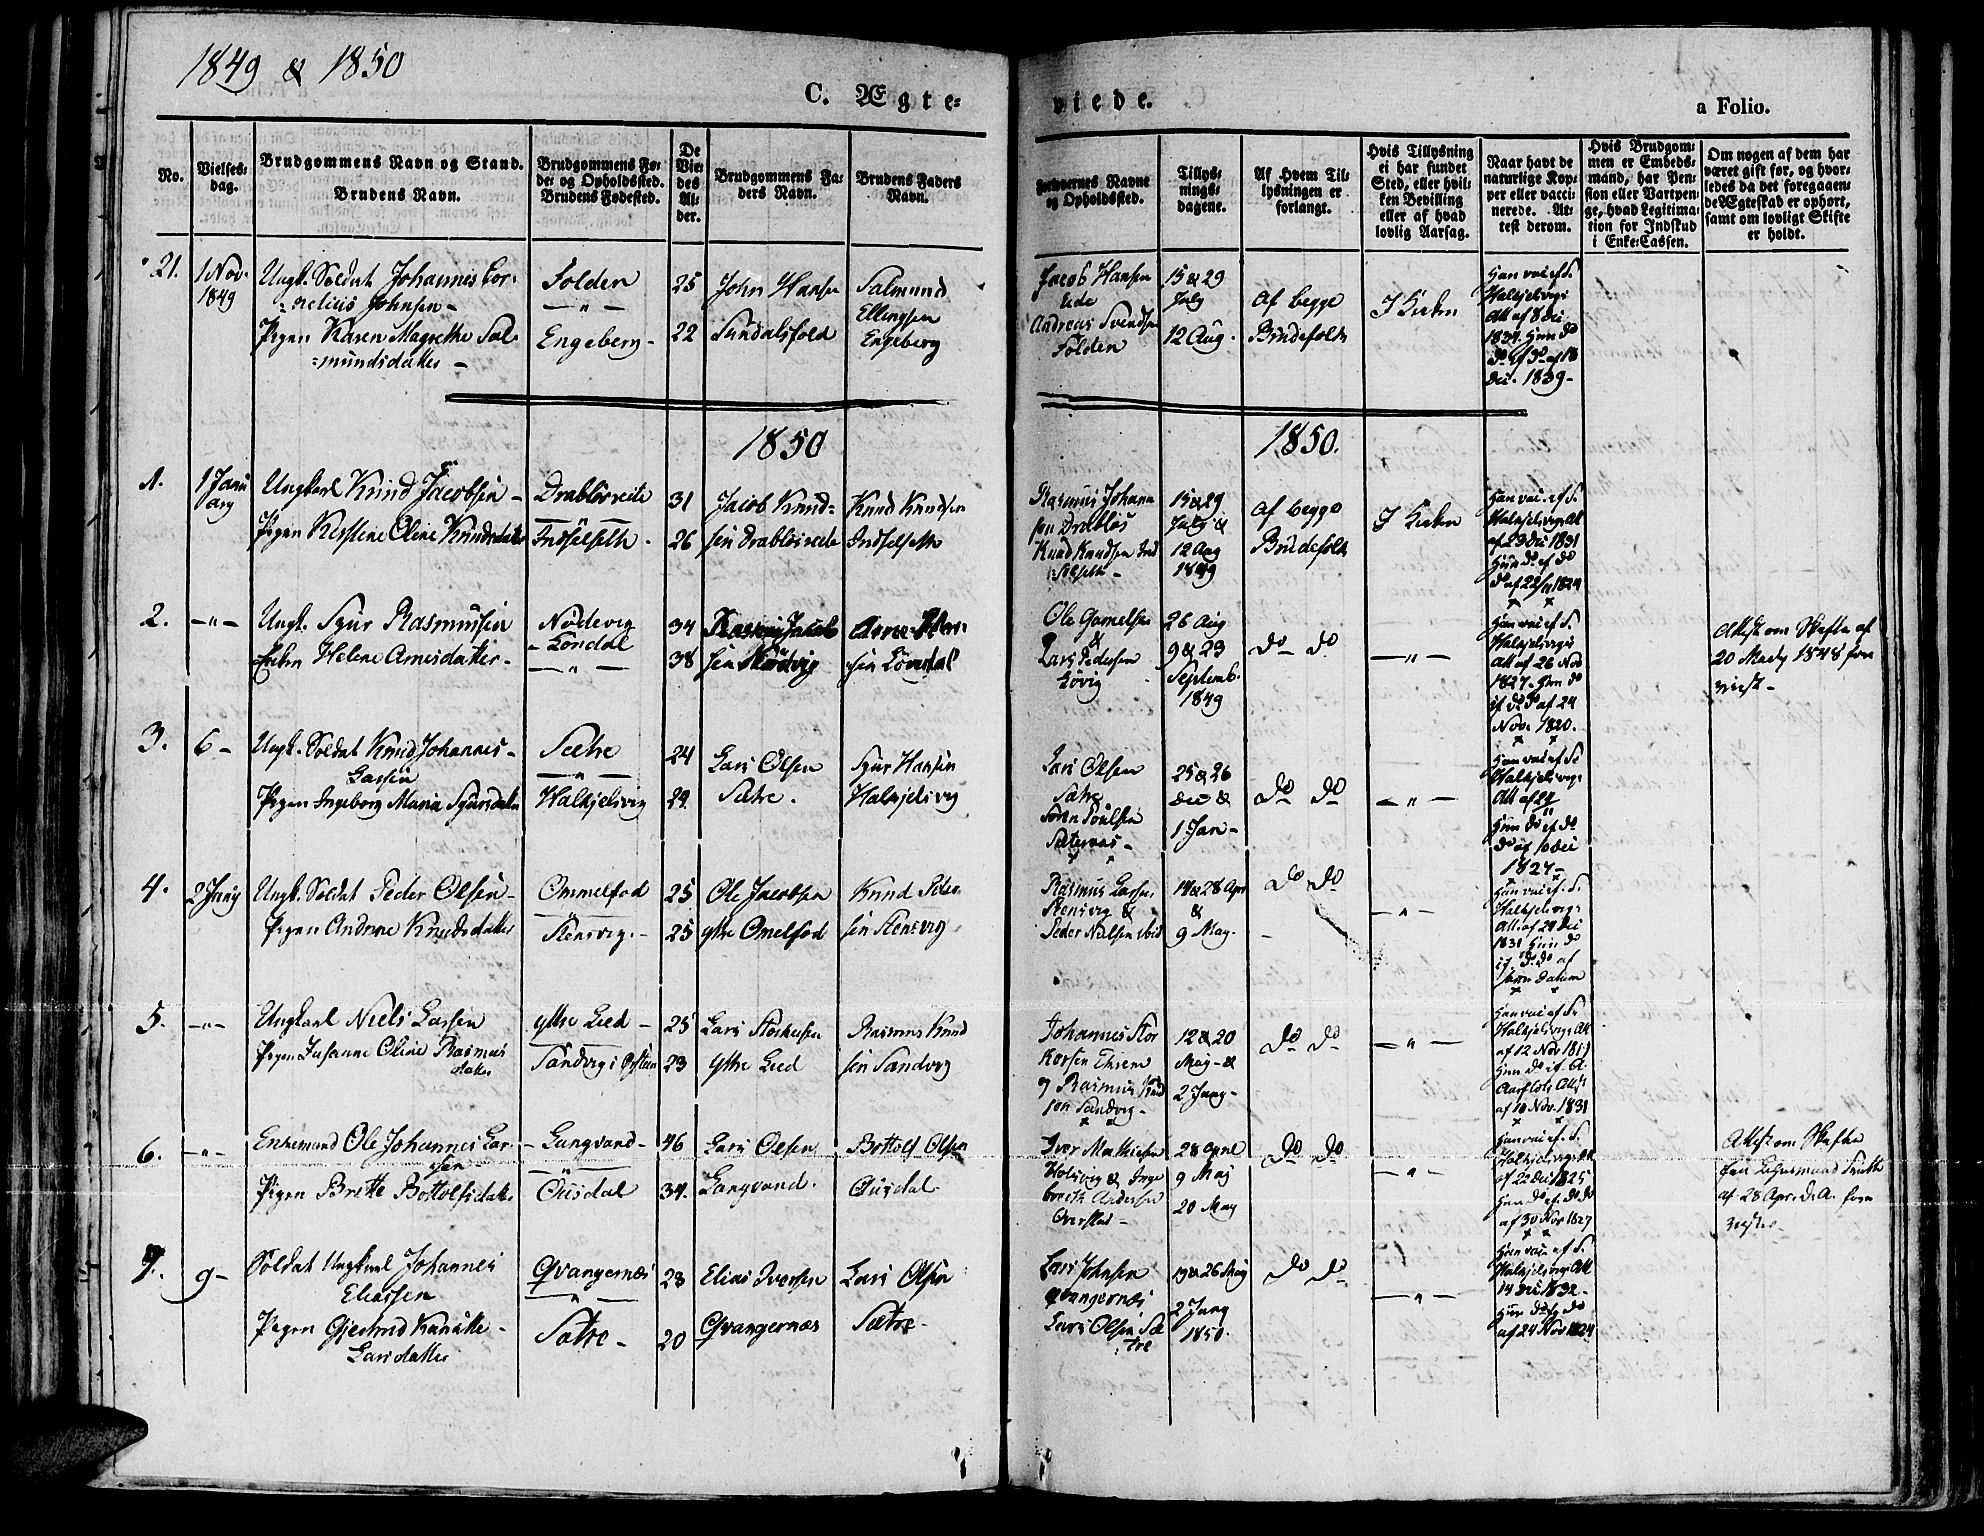 1849 & 1850
C. Ægte-
viede.
a Folio.
No.
Vielses-
dag.
Brudgommens Navn og Stand.
Brudens Navn.
Brudgommens Fø-
de- og Opholdssted.
Brudens Fødested.
De
Vie-
des
Al-
der.
Brudgommens Fa-
ders Navn.
Brudens Faders
Navn.
Forlovernes Navne
og Opholdssted.
Tillys-
nings-
dagene.
Af Hvem Til-
lysningen er
forlangt.
Hvis Tillysning
ei har fundet
Sted, eller hvil-
ken Bevilling
eller af hvad
lovlig Aarsag.
Naar havt de
naturlige Kop-
per eller vacci-
nerede. At-
test derom.
Hvis Brudgom-
men er Embeds-
mand, har Pen-
sion eller Vartpen-
ge, hvad Legitima-
tion for Indskud
i Enke-Cassen.
Om nogen af dem har
været gift før, og hvor-
ledes da det foregaaen-
de Ægteskab er ophørt,
samt om lovligt Skifte
er holdt.
21.
1 Nov.
1849
Ungk. Soldat Johannes Cor-
nelius Johnsen
Pigen Karen Magrethe Sal-
mundsdatter
Folden
Engeberg
25
22
John Hansen
Sundalsfold
Salmund
Ellingsen
Engeberg
Jacob Hansen
Andreas Svendsen
Folden
15 & 29
July
12 Aug.
Af begge
Brudefolk
I Kirken
Han vac. af S.
Halkjelsvigs
Att af 8 Dec
1834. Hun do
do af do af 18
Dec. 1839
1850
1850.
1.
1 Janu
ary
Ungkarl Knud Jacobsen
Pigen Kestene Oline Knudsdatter
Drabløsveite
Indselseth
31
26
Jacob Knud-
sen Drabløsveite
Knud Knudsen
Indselseth
Rasmus Johann
sen Drabløs
Knud Knudsen Ind
selseth
15 & 29
July &
12 Aug
1849
Af begge
Brudefolk
I Kirken
Han vac. af S.
Halkjelsvigs Att
af 29 Dec 1831
Hun do af do
do af 22/11 1824
2.
-"-
Ungk. Sjur Rasmussen
Enken Helene Arnesdatter
Nødevig
Londal
-"-
34
38
Rasmus Jacob
sen Nødvig
Arne
Ole Gamelsen
&
Lars Pedersen
Løvig
26 Aug
9 & 23
Septemb.
1849
do do
-"-
Han vac. af S.
Halkjelsvigs
Att af 26 Nov
1827. Hun do
af do do af 24
Nov. 1820.
Attest om Skifte af
20 Mady 1848 fore
viist
3.
6
Ungk. Soldat Knud Johannes
Larssen
Pigen Ingeborg Maria Sjursdatter
Sætre
Halkjelsvig
24
29.
Lars Olsen
Sætre.
Sjur Hansen
Halkjelsvig
Lars Olsen
Sætre
Søren Poulsen
25 & 26
Dec &
1 Jan
do do
-"-
Han vac af S.
Halkjelsvigs
Att af 29
Hun do af do
do af 10 Dec
1827
4.
2 Juny
Ungk. Soldat Peder Olsen
Pigen Andrine Knudsdatter
Ommelfod
Stensvig
25
25
Ole Jacobsen
ytre Omelfod
Knud Peder
sen Stensvig
Rasmus Larsen
Stensvig &
Peder Nilsen ibid
14 & 28 Apr
&
9 May
do do
-"-
Han vac. af S.
Halkjelsvigs
Att. af 29 Dec
1831 Hun do
af do do af
samme Datum
5.
-"-
Ungkarl Niels Larsen
Pigen Susanne Oline Rasmus
datter
Ytre Lied
Sandvig i Ørsten
25
23
Lars Storkersen
Ytre Lied
Rasmus Knud
sen Sandvig
Johannes Stor
korsen
& Rasmus Knud
sen Sandvig
12 & 20
May &
2 Juny
do do
-"-
Han vac. af S.
Halkjelsvigs Att
af 12 Nov
Hun do af A.
Aarflots Att
af 10 Nov. 1831
6.
-"-
Enkemand Ole Johannes Lar-
sen
Pigen Brette Bottolfsdatter
Langvand
Ousdal
46
34.
Lars Olsen
Langvand.
Bottolf Olsen
Ousdal
Iver Mathiesen
Holsvig & Inge
breth Andersen
Overstad
28 Aprl
9 May
20 May
do do
-"-
Han vac. af S.
Halkjelsvigs Att
af 22 Dec 1825
Hun do af do do
af 30 Nov 1827
Attest om Skifte
fra Lehnsmand
af 28 Apr. d. A. fore
vist
7.
9
Soldat Ungkarl Johannes
Eliassen
Pigen Gjertrud Kanutte
Larsdatter
Qvangernæs
Sætre
28
20
Elias Iversen
Qvangernæs
Lars Olsen
Sætre
Lars Johnsen
Qvangernæs
Lars Olsen Sæ
tre
19 & 26 May
2 Juny
1850.
do do
-"-
Han vac. af S.
Halkjelsvigs Att
14 Dec 1832
Hun do af do
af 24 Nov 1824